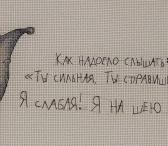 Как надоело слышать:
«Ты сильная. Ты справиш
Я слабая! Я на шею